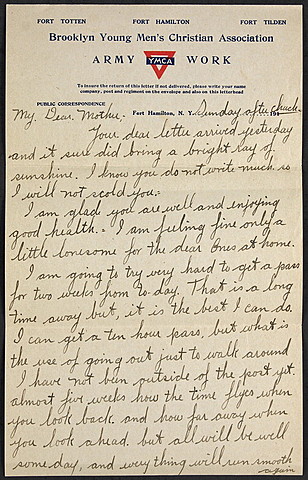 FORT TOTTEN FORT HAMILTON FORT TILDEN
Brooklyn Young Men's Christian Association
ARMY YMCA WORK
To insure the return of this letter if not delivered, please write your name
company, post and regiment on the envelope and also on this letterhead
PUBLIC CORRESPONDENCE
Fort Hamilton, N. Y. Sunday after chuck. 191
My Dear Mother.
Your dear letter arrived yesterday
and it sure did bring a bright ray of
sunshine. I know you do not write much so
I will not scold you.
I am glad you are well and enjoying
good health. I am feeling fine only a
little lonesome for the dear ones at home.
I am going to try very hard to get a pass
for two weeks from to-day. That is a long
time away but, it is the best I can do.
I can get a ten hour pass, but what is
the use of going out just to walk around
I have not been outside of the post yet.
almost five weeks how the time flys when
you look back, and how far away when
you look ahead, but all will be well
some day, and every thing will run smooth
again